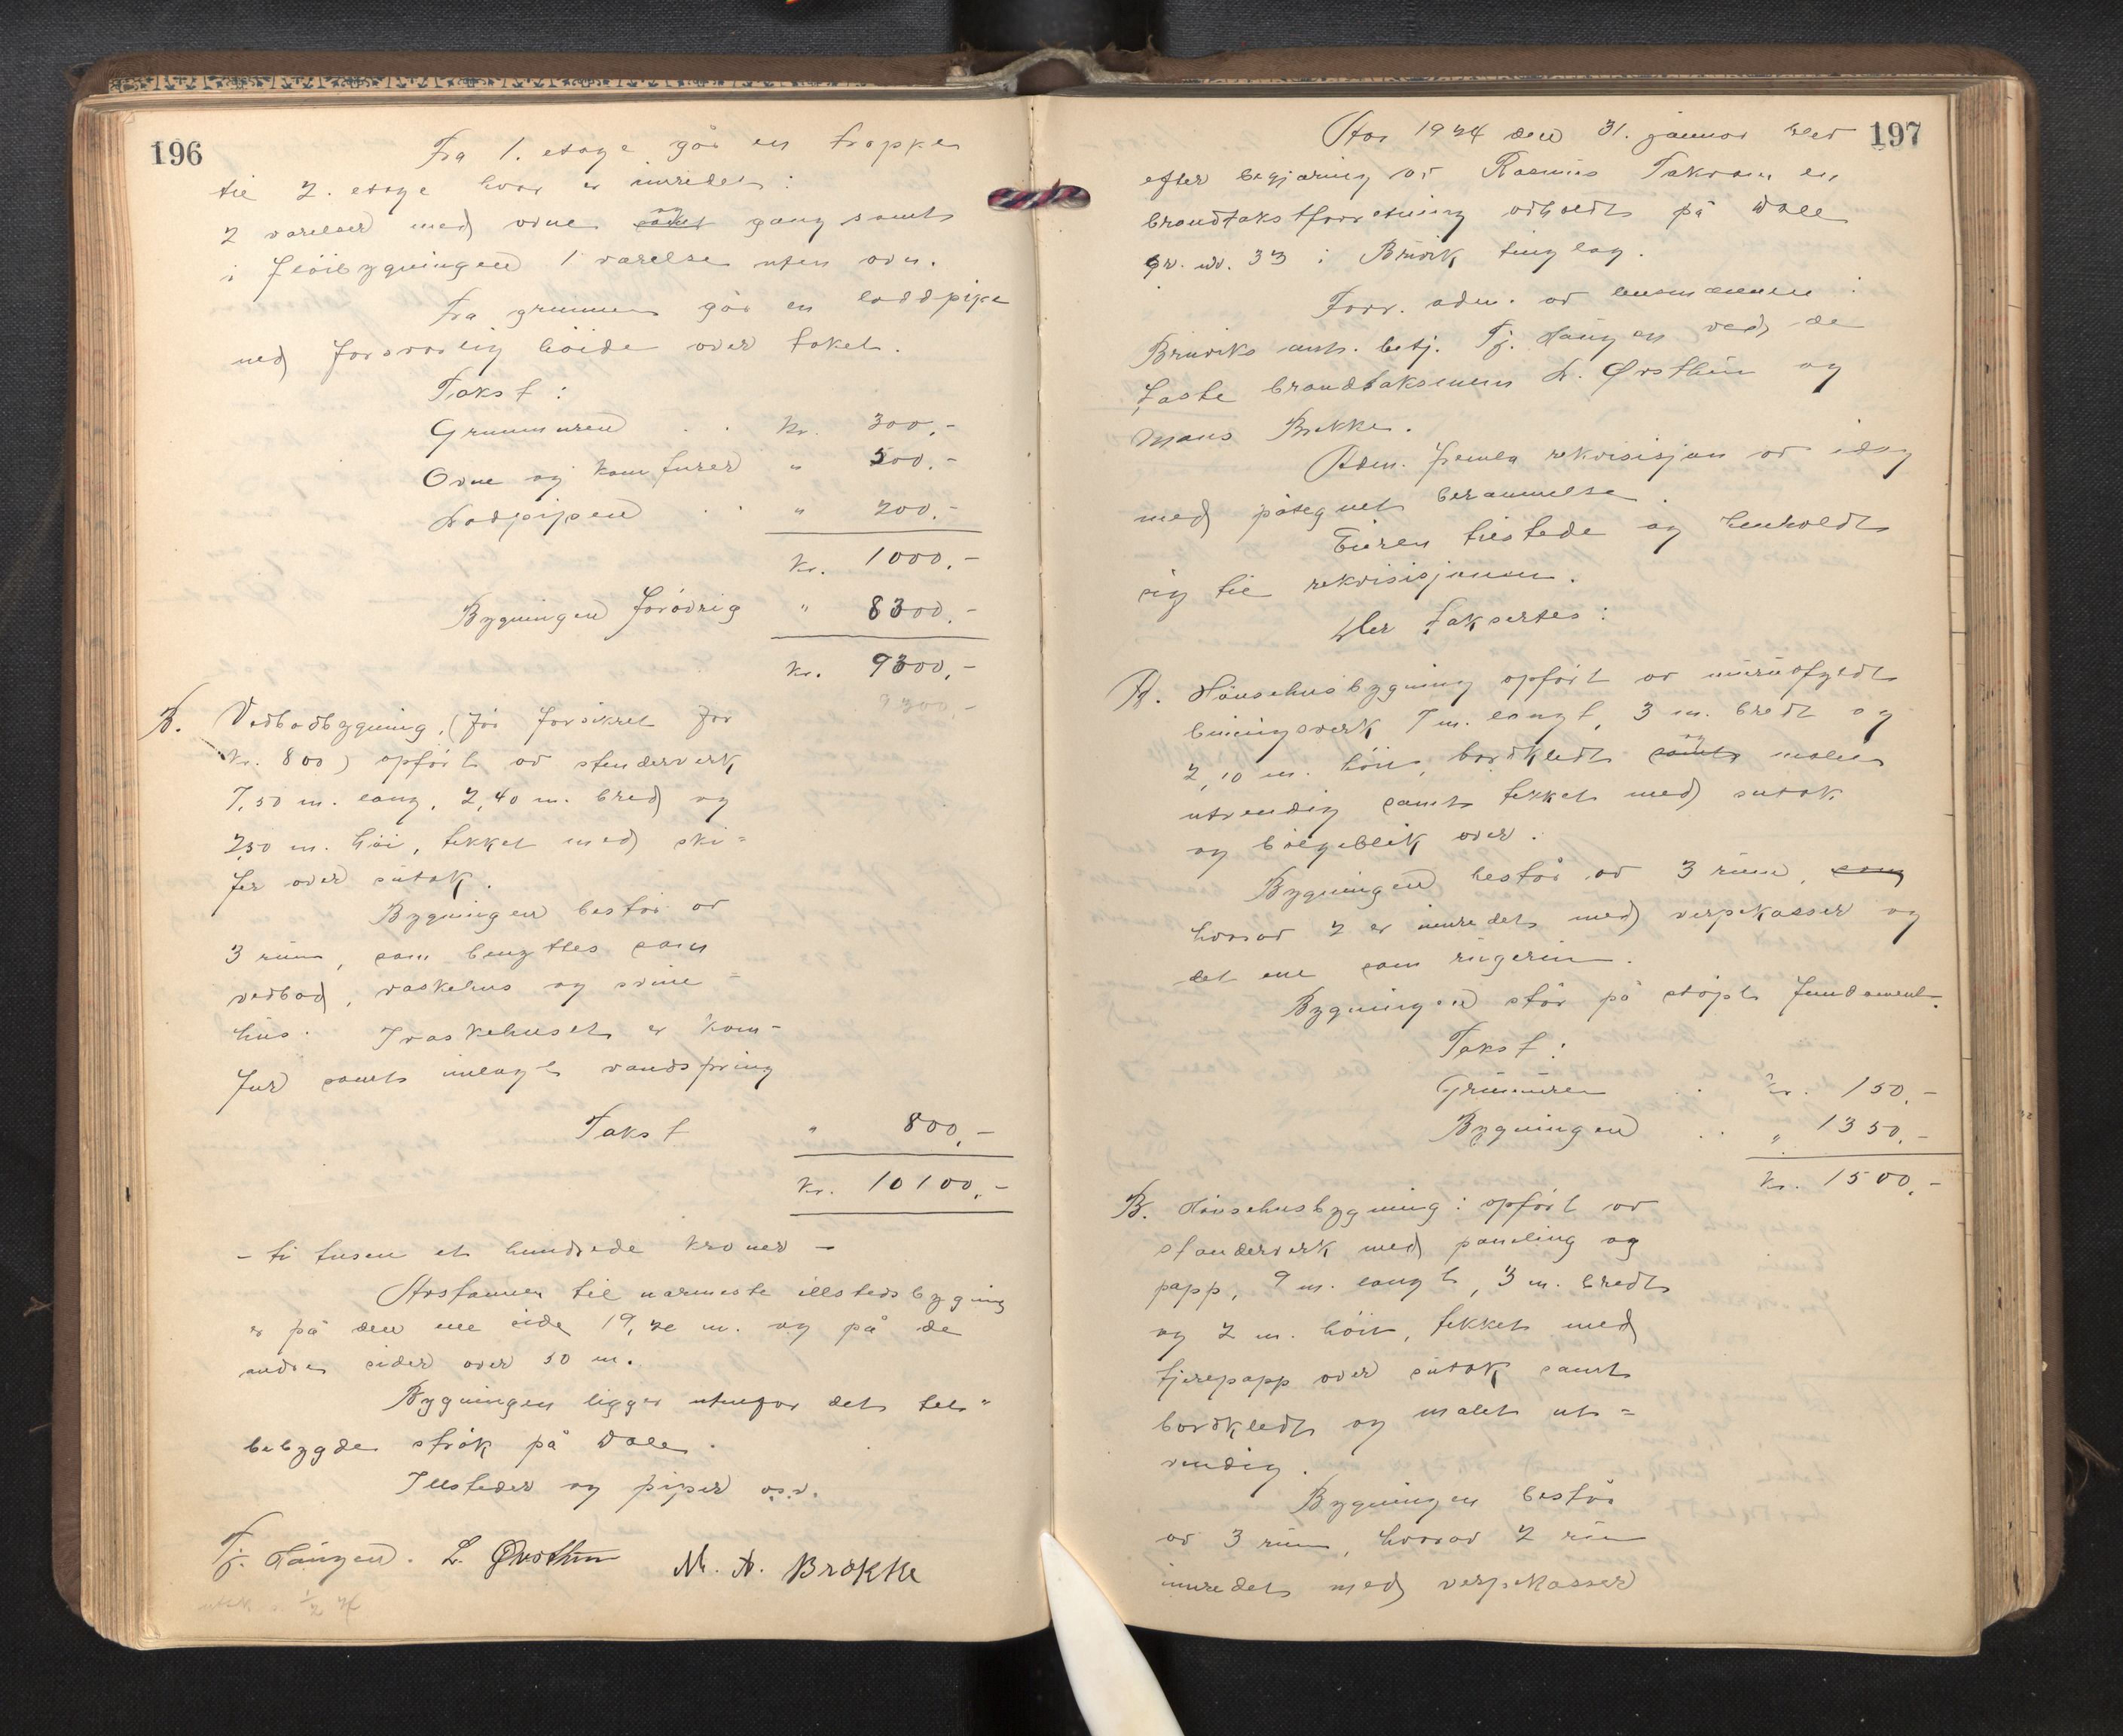 196
Fra 1. etage går en trappe
til 2. etage hvor er innredet:
2 værelser med ovne samt og gang samt
i fløibygningen 1 værelse uten ovn.
Fra grunnen går en loddpipe
med forsvarlig höide over taket.
Takst:
Grunnmuren . . kr. 300,-
Ovne og komfurer " 500,-
Lodpipen . . " 200,-
kr. 1000,-
Bygningen forövrig " 8300,-
kr. 9300,-
9300,-
B. Vedbodbygning, (för forsikret for
kr. 800) opfört av stenderverk
7,50 m. lang, 2,40 m. bred og
2,50 m. höi, tekket med ski=
fer over sutak.
Bygningen består av
3 rum, som benyttes som
vedbod, vaskehus og svine=
hus. I vaskehuset er kom-
fur samt innlagt vandspring
Takst " 800,-
kr. 10100,-
- ti tusen et hundrede kroner -
Avstannen til nærmeste illstedsbygning
er på den ene side 19,20 m. og på de
andre sider over 50 m.
Bygningen ligger utenfor det tett=
bebygde strök på Dale.
Illsteder og piper o.s.v.
Tj. Haugen. L. Ørsthun M. A. Brekke
utsk. s. 1/2 24
197
År 1924 den 31. januar blev
efter begjæring av Rasmus Takvam en
brandtakstforretning avholdt på Dale
gr. nr. 33 i Bruvik tinglag.
Forr. adm. av lensmannen i
Bruviks aut. betj. Tj. Haugen ved de
faste brandtaksmenn L. Ørsthun og
Mons Brekke.
Adm. fremla rekvisisjon av idag
med påtegnet berammelse.
Eieren tilstede og henholdt
sig til rekvisisjonen.
Der taksertes:
A. Hönsehusbygning opfört av murutfyldt
binningsverk 7 m. langt, 3 m. bredt og
2,10 m. höit, bordkledt samt og malet
utvendig samt tekket med sutak
og bölgeblik over.
Bygningen består av 3 rum, som
hvorav 2 er innredet med verpekasser og
det ene som rugerum.
Bygningen står på stöpt fundament.
Takst:
Grunmuren . kr. 150,-
Bygningen . . " 1350,-
kr. 1500,-
B. Hönsehusbygning: opfört av
standerverk med paneling og
papp, 9 m. langt, 3 m. bredt
og 2 m. höit, tekket med
tjærepapp over sutak samt
bordkledt og malet ut=
vendig.
Bygningen består
av 3 rum, hvorav 2 rum
innredet med verpekasser